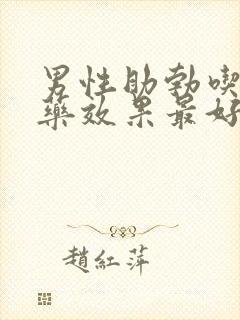 男性助勃喫
藥效果最好
趙紅萍